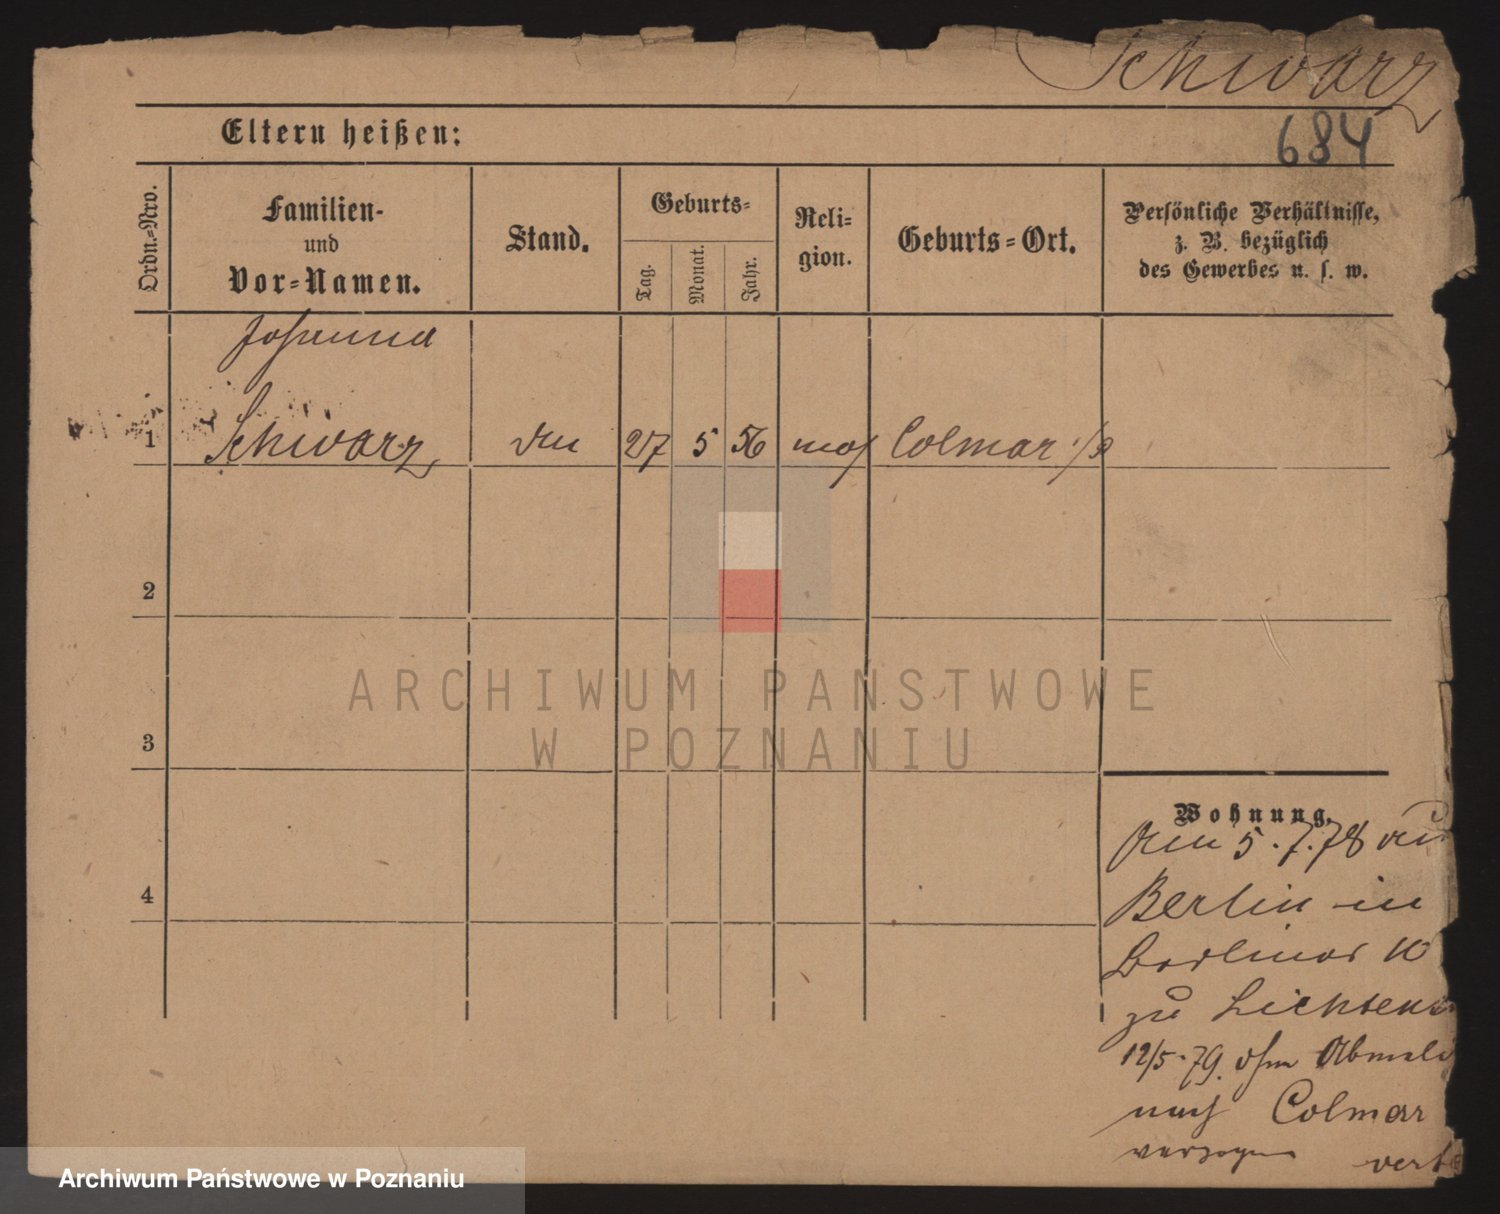 Schwarz
Eltern heißen:
684
Ordn.-Nro.
Familien-
und
Vor-Namen.
Stand.
Geburts-
Tag.
Monat.
Jahr.
Reli-
gion.
Geburts-Ort.
Persönliche Verhältnisse,
z. B. bezüglich
des Gewerbes u. s. w.
Johanna
1 Schwarz 27 5 56 mos Colmar i/P
2
3
4
Wohnung.
5.7.78
Berlin in
Berliner 10
zu Lichten
12/5.79. ohne Abmeld
nach Colmar
verzogen
ARCHIWUM PAŃSTWOWE
W POZNANIU
Archiwum Państwowe w Poznaniu